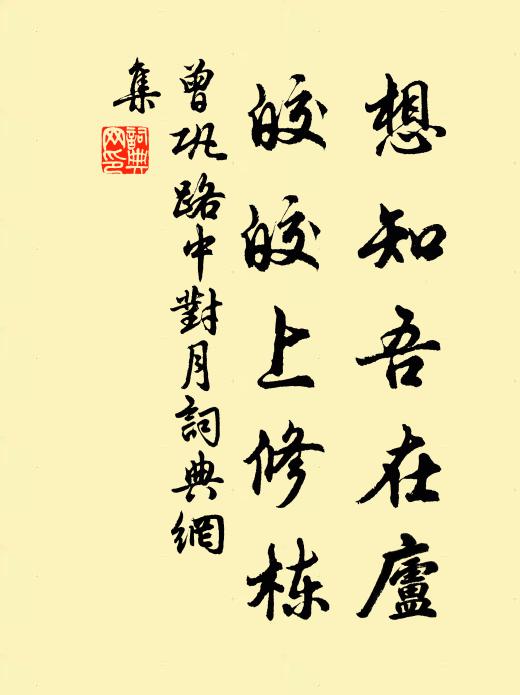 想知吾在廬
皎皎上修栋
曾巩路中對月詞典網
集
詞典
网印